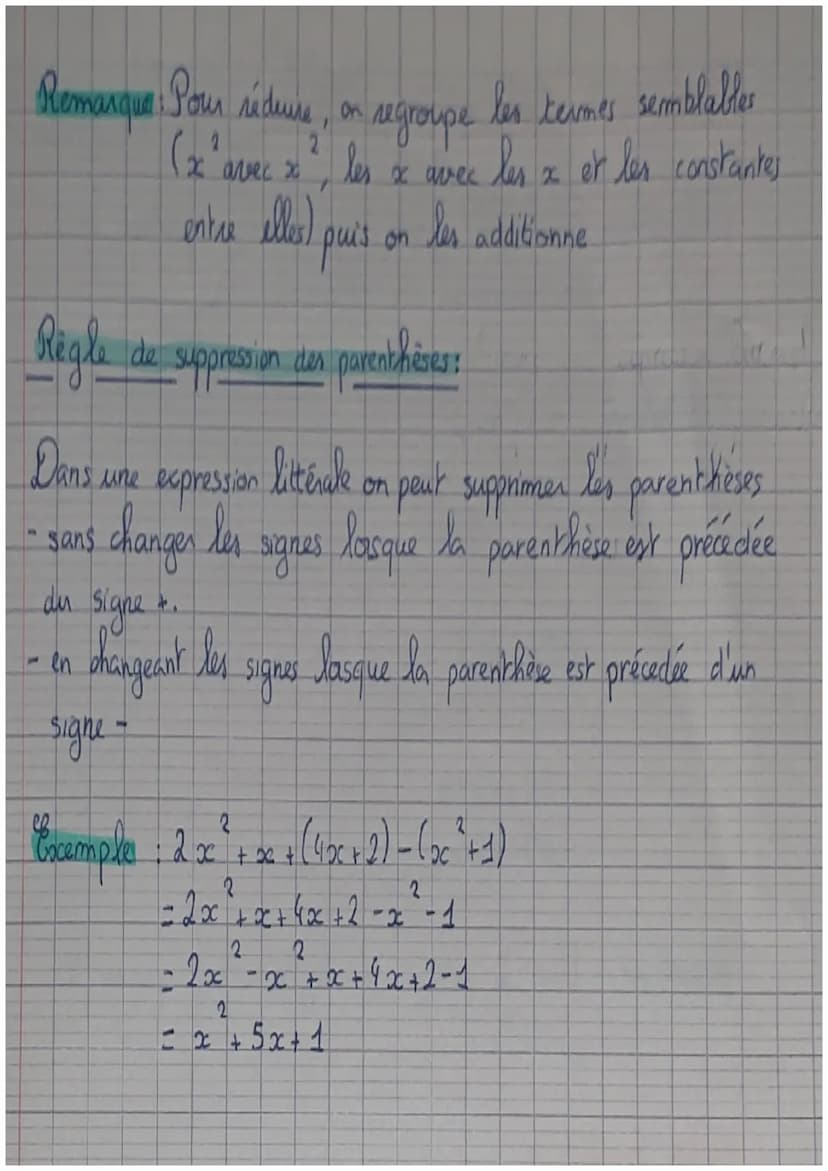 Remarque : Pour réduire, on regroupe les termes semblables
(x² avec x², les x avec les x et les constantes
entre elles) puis on les additionne
Règle de suppression des parenthèses :
Dans une expression littérale on peut supprimer les parenthèses
- sans changer les signes lorsque la parenthèse est précédée
du signe +.
- en changeant les signes lasque la parenthèse est précedée d'un
signe -
Exemple : 2x² + x + (4x + 2) - (x² + 1)
= 2x² + x + 4x + 2 - x² - 1
= 2x² - x² + x + 4x + 2 - 1
= x² + 5x + 1